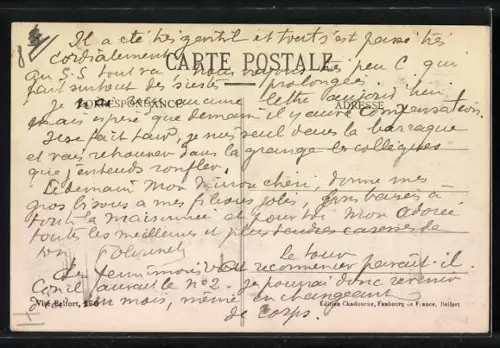 Il a été très gentil et tout s'est passé très
cordialement
CARTE POSTALE
au S.S tout va nous voyons très peu C qui
fait surtout des siestes prolongées.
Je aucune lettre aujourd'hui
CORRESPONDANCE
ADRESSE
mais espère que demain il y aura compensation.
Il se fait tard, je suis seul dans la baraque
et vais retrouver dans la grange les collègues
que j'entends ronfler.
A demain mon chéri, donne mes
gros bisous à mes jolis, gros baisers à
toute la maisonnée et pour toi mon adoré
toutes les meilleures et plus tendres caresses de
ton
le tour
Le va recommencer paraît-il.
aura le no 2. Je pourrai donc revenir
dans un mois, même en changeant
de corps.
Vve Belfort, 150
Edition Chadourne, Faubourg de France, Belfort